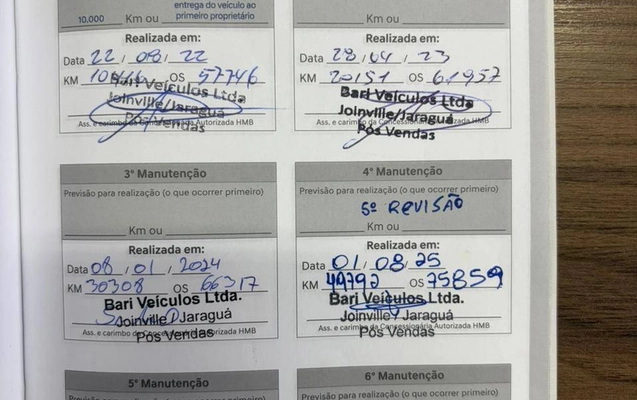 entrega do veículo ao
10.000 Km ou primeiro proprietário
Realizada em:
Data 22 / 08 / 22
KM OS 57746
Bari Veículos Ltda
Joinville/Jaraguá
Pós Vendas
Ass. e carimbo da Concessionária Autorizada HMB
Km ou
Realizada em:
Data 28 / 04 / 23
KM 20151 OS 61957
Bari Veículos Ltda
Joinville/Jaraguá
Ass. e carimbo da Concessionária Autorizada HMB
Pós Vendas
3ª Manutenção
Previsão para realização (o que ocorrer primeiro)
Km ou
Realizada em:
Data 08 / 01 / 2024
KM 30308 OS 66317
Bari Veículos Ltda.
Joinville Jaraguá
Ass. e carimbo da Concessionária Autorizada HMB
Pós Vendas
4ª Manutenção
Previsão para realização (o que ocorrer primeiro)
5º REVISÃO
Km ou
Realizada em:
Data 01 / 08 / 25
KM 49792 OS 75859
Bari Veículos Ltda.
Joinville Jaraguá
Ass. e carimbo da Concessionária Autorizada HMB
Pós Vendas
5ª Manutenção
6ª Manutenção
Previsão para realização (o que ocorrer primeiro)